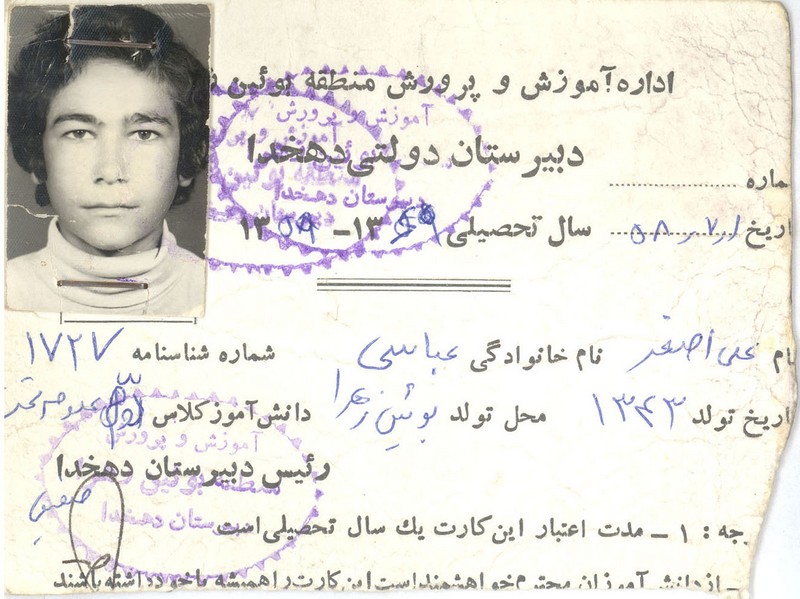 اداره آموزش و پرورش منطقه بوئین
دبیرستان دولتی دهخدا
ماره
سال تحصیلی ۱۳۵۹ – ۱۳۵۸
اریخ ۵۸٫۷٫۱
ام علی اصغر نام خانوادگی عباسی شماره شناسنامه ۱۷۲۷
اریخ تولد ۱۳۴۳ محل تولد بوئین زهرا دانش‌آموز کلاس
رئیس دبیرستان دهخدا
جه : ۱ – مدت اعتبار این کارت یك سال تحصیلی است
– از دانش آموزان محترم خواهشمند است این کارت را همیشه با خود داشته باشند
آموزش و پرورش
دبیرستان دهخدا
آموزش و پرورش
منطقه بوئین
دبیرستان دهخدا